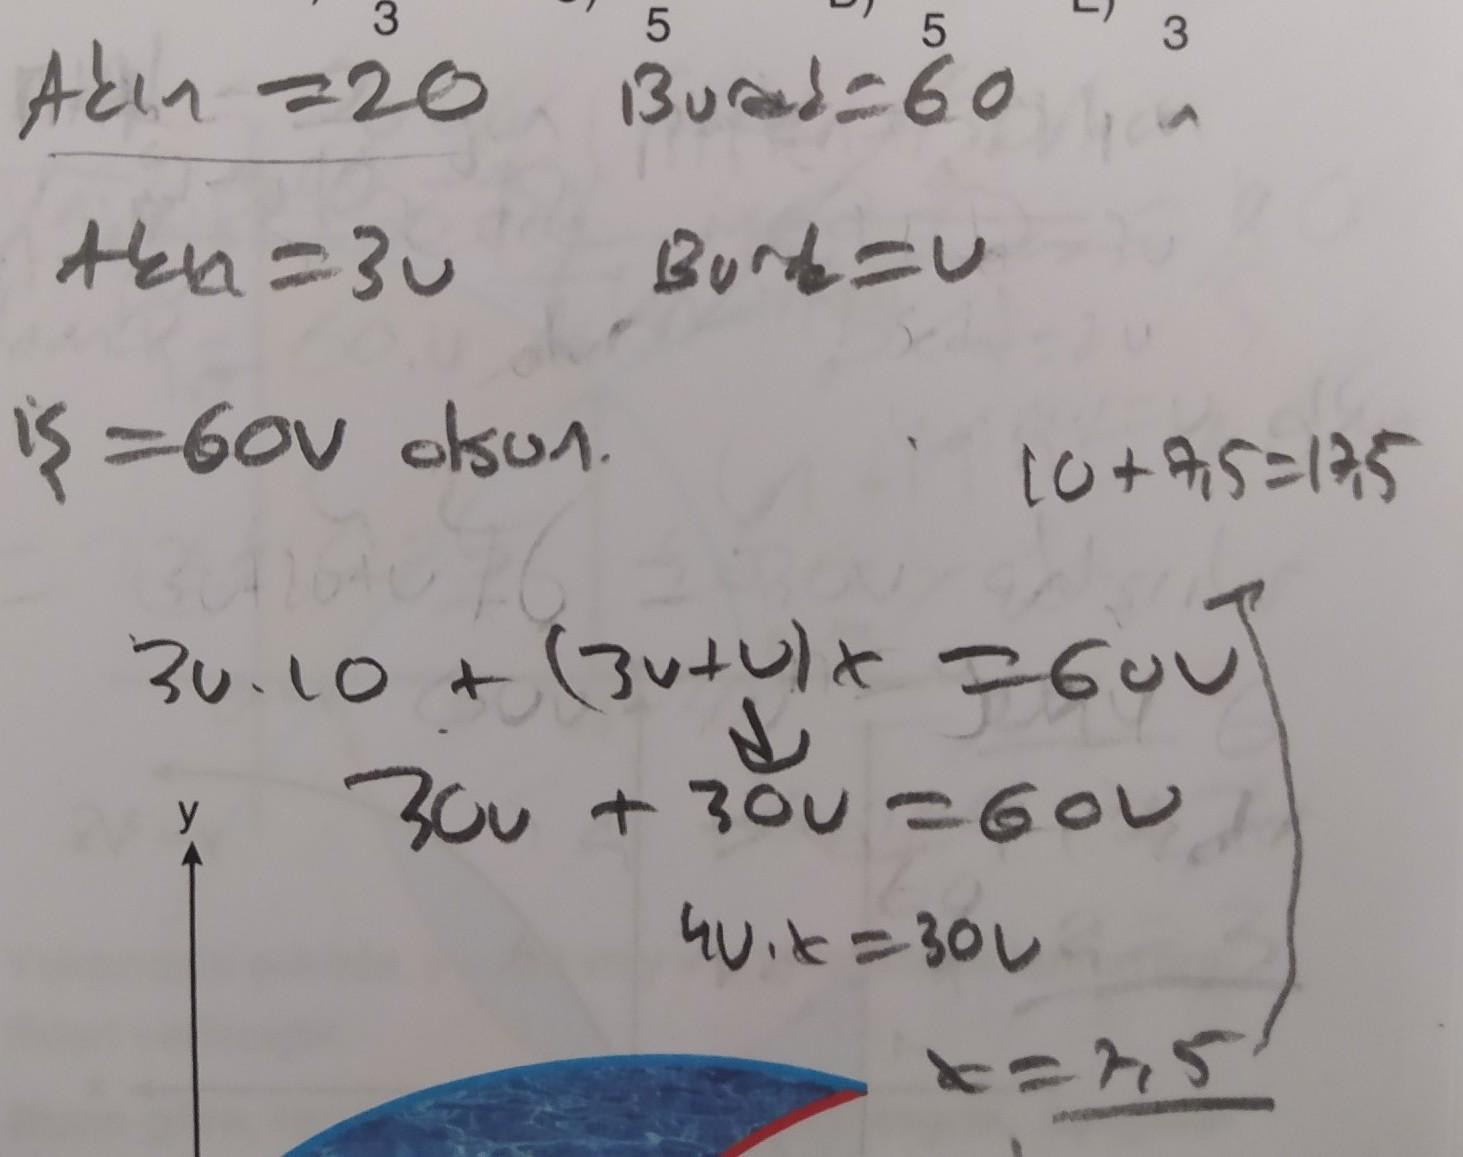 3 5 5 E) 3
Akın = 20 Burak = 60
Akın = 3v Burak = v
iş = 60v olsun.
10 + 7,5 = 17,5
3v.10 + (3v+v)x = 60v
30v + 30v = 60v
y
4v.x = 30v
x = 7,5